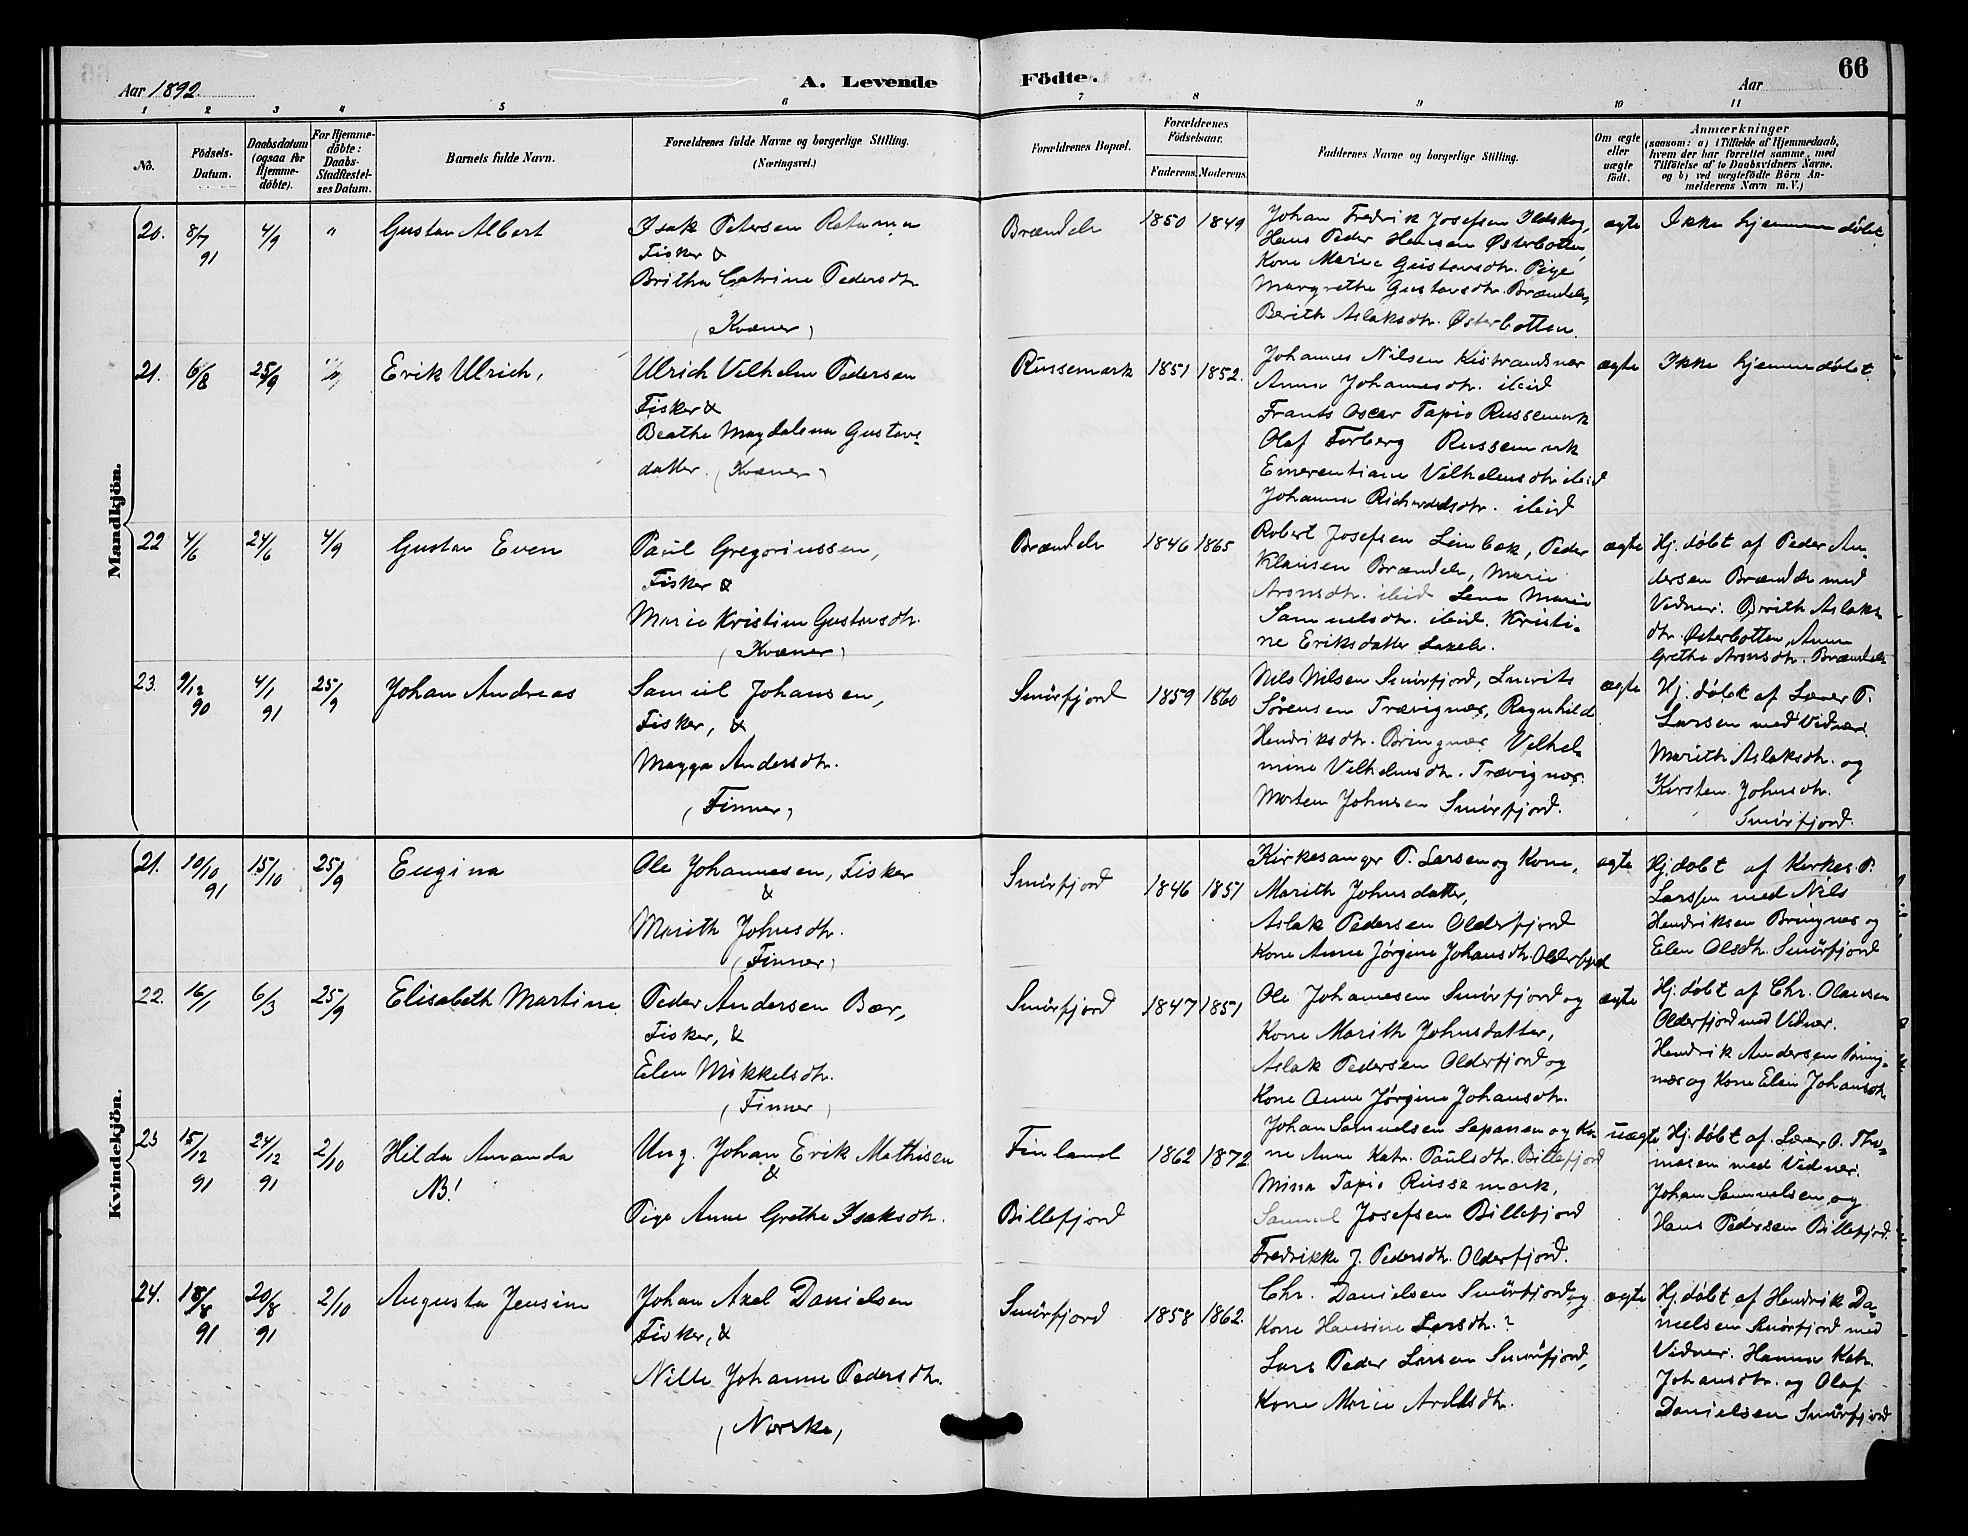 Aar 1892. A. Levende Födte. Aar 66
1 2 3 4 5 6 7 8 9 10 11
No. Födsels-Datum. Daabsdatum (ogsaa for Hjemme-döbte). For Hjemme-döbte: Daabs-Stadfæstel-ses Datum. Barnets fulde Navn. Forældrenes fulde Navne og borgerlige Stilling. (Næringsvei.) Forældrenes Bopæl. Forældrenes Födselsaar. Faderens. Moderens. Faddernes Navne og borgerlige Stilling. Om ægte eller uægte født. Anmærkninger (saasom: a) i Tilfælde af Hjemmedaab, hvem der har forrettet samme, med Tilföielse af to Daabsvidners Navne, og b) ved uægtefödte Börn An-melderens Navn m. V.)
Mandkjön.
20. 8/7 91 4/9 " Gustav Albert
Isak Petersen
Fisker &
Britha Catrine Pedersdtr.
(Kvæner)
Brændelv 1850 1849
Johan Fredrik Josefsen Ildskog,
Hans Peder Hansen Østerbotten,
Kone Marie Gustavsdtr. Pige
Margrethe Gustavsdtr. Brændelv,
Berith Aslaksdtr. Østerbotten.
ægte Ikke hjemmedøbt
21. 6/8 25/9 " Erik Ulrich,
Ulrich Vilhelm Pedersen
Fisker &
Beathe Magdalena Gustavs-
datter. (Kvæner)
Russemark 1851 1852.
Johannes Nilsen Kistrandsnæs
Anna Johannesdtr. ibid
Frants Oscar Tapio Russemark
Olaf Forberg Russemark
Emerentiane Vilhelmsdtr ibid
Johanna Richardsdtr. ibid
ægte Ikke hjemmedøbt.
22 4/6 24/6 4/9 Gustav Even
Paul Gregoriussen,
Fisker &
Marie Kristine Gustavsdtr.
(Kvæner)
Brændelv 1846 1865
Robert Josefsen Leinbæk, Peder
Klausen Brændelv, Marie
Aronsdtr. ibid Lena Marie
Samuelsdtr. ibid. Kristi-
ne Eriksdatter Laxelv.
ægte
Hj. døbt af Peder An-
dersen Brændelv med
Vidner: Brith Aslaks-
dtr. Østerbotten, Anne
Grethe Aronsdtr. Brændelv
23. 9/12 90 4/1 91 25/9 Johan Andreas
Samuel Johansen,
Fisker, &
Magga Andersdtr.
(Finner)
Smørfjord 1859 1860
Nils Nilsen Smørfjord, Laurits
Sørensen Trævignæs, Ragnhild
Hendriksdtr. Bringnæs Vilhel-
mine Vilhelmsdtr. Trævignæs.
Morten Johnsen Smørfjord.
ægte
Hj. døbt af Lærer P.
Larsen med Vidner.
Marith Aslaksdtr. og
Kirsten Johnsdtr.
Smørfjord.
Kvindekjön.
21. 10/10 91 15/10 25/9 Eugina
Ole Johannesen, Fisker
&
Marith Johnsdtr.
(Finner)
Smørfjord 1846 1851
Kirkesanger P. Larsen og Kone,
Marith Johnsdatter,
Aslak Pedersen Olderfjord
Kone Anne Jørgine Johansdtr. Olderfjord
ægte
Hj. døbt af Kirkes. P.
Larssen med Nils
Hendriksen Bringnæs og
Elen Olsdtr. Smørfjord
22. 16/1 6/3 25/9 Elisabeth Martine
Peder Andersen Bær,
Fisker, &
Elen Mikkelsdtr.
(Finner)
Smørfjord 1847 1851
Ole Johannesen Smørfjord og
Kone Marith Johnsdatter,
Aslak Pedersen Olderfjord og
Kone Anne Jørgine Johansdtr.
ægte
Hj. døbt af Chr. Olaussen
Olderfjord med Vidner.
Hendrik Andersen Bring-
næs og Kone Elen Johansdtr.
23 15/12 91 24/12 91 2/10 Hilda Amanda
NB!
Ung. Johan Erik Mathisen
&
Pige Anne Grethe Isaksdtr.
Finland 1862 1872
Billefjord
Johan Samuelsen Sapanen og Ko-
ne Anne Katr. Paulsdtr. Billefjord
Mina Tapio Russemark,
Samuel Josefsen Billefjord
Fredrikke J. Pedersdtr. Olderfjord.
uægte
Hj. døbt af Lærer O. Tho-
masen med Vidner.
Johan Samuelsen og
Hans Pedersen Billefjord.
24. 18/8 91 20/8 91 2/10 Augusta Jensine
Johan Axel Danielsen
Fisker, &
Nille Johanne Pedersdtr.
(Norske)
Smørfjord 1858 1862.
Chr. Danielsen Smørfjord og
Kone Hansine Larsdtr.?
Lars Peder Larsen Smørfjord,
Kone Marie
ægte
Hj. døbt af Hendrik Da-
nielsen Smørfjord med
Vidner. Hanna Katr.
Johansdtr. og Olaf
Danielsen Smørfjord